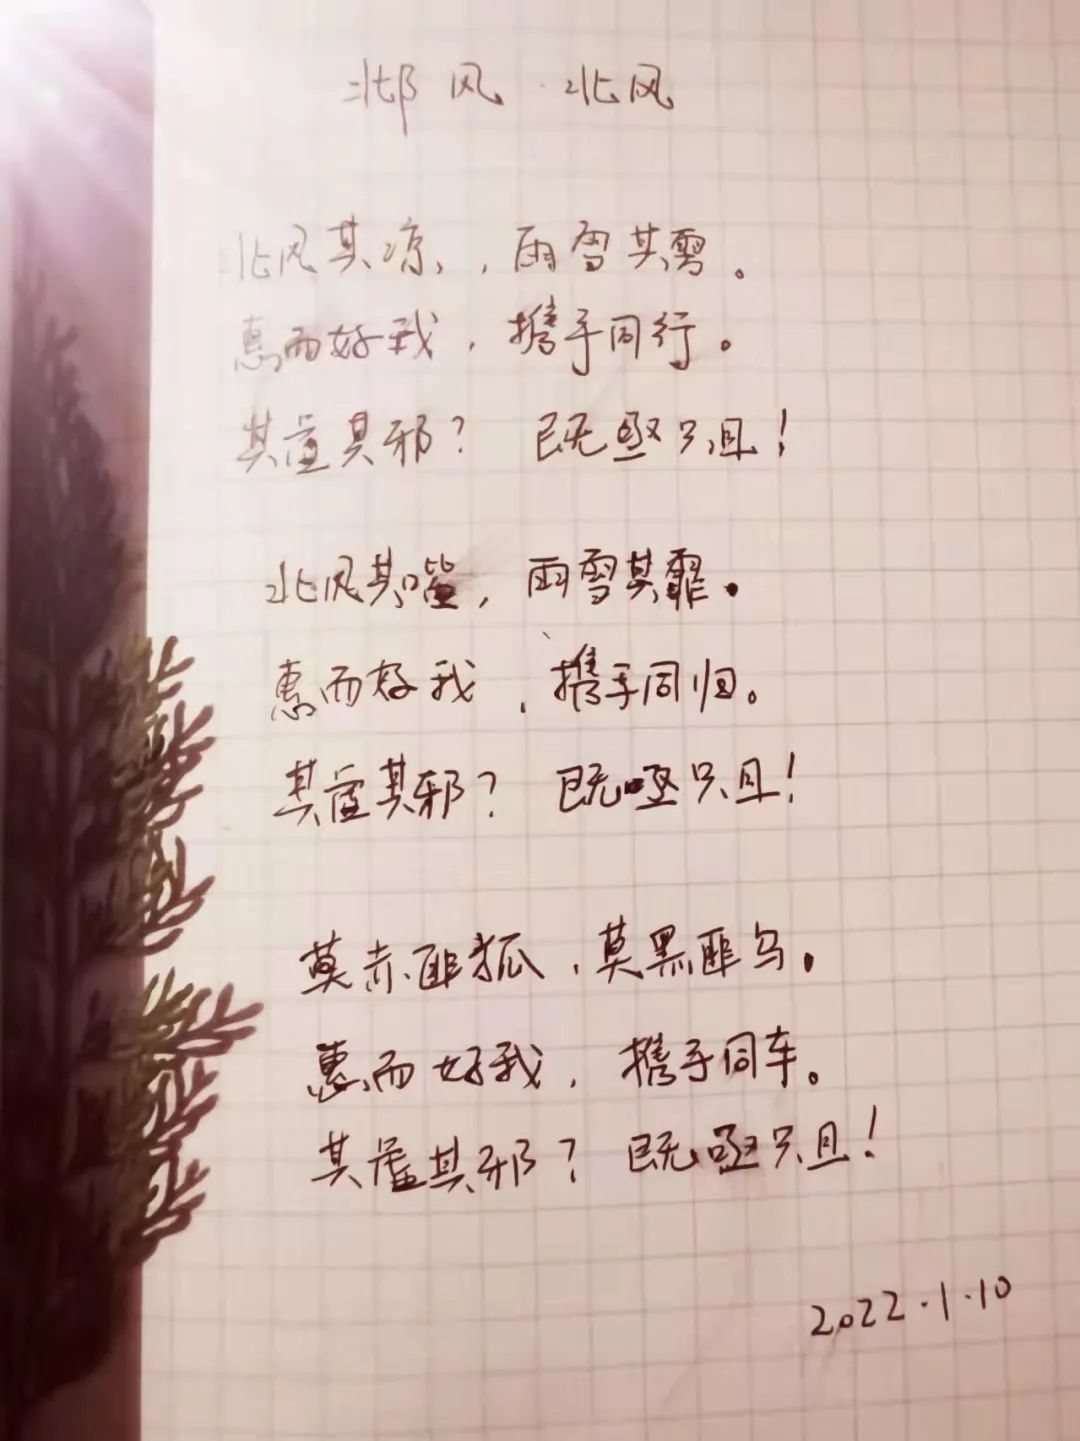 邶风·北风
北风其凉，雨雪其雱。
惠而好我，携手同行。
其虚其邪？既亟只且！
北风其喈，雨雪其霏。
惠而好我，携手同归。
其虚其邪？既亟只且！
莫赤匪狐，莫黑匪乌。
惠而好我，携手同车。
其虚其邪？既亟只且！
2022.1.10